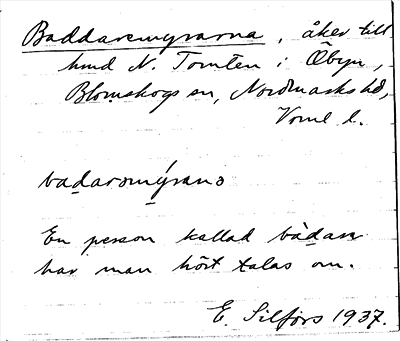 Baddaremyrarna, åker till
hmd N. Tomten i Öbyn,
Blomskogs sn, Nordmarks hd,
Vrml l.
badarəmýrana
En person kallad bàdarn
har man hört talas om.
E. Silfors 1937.